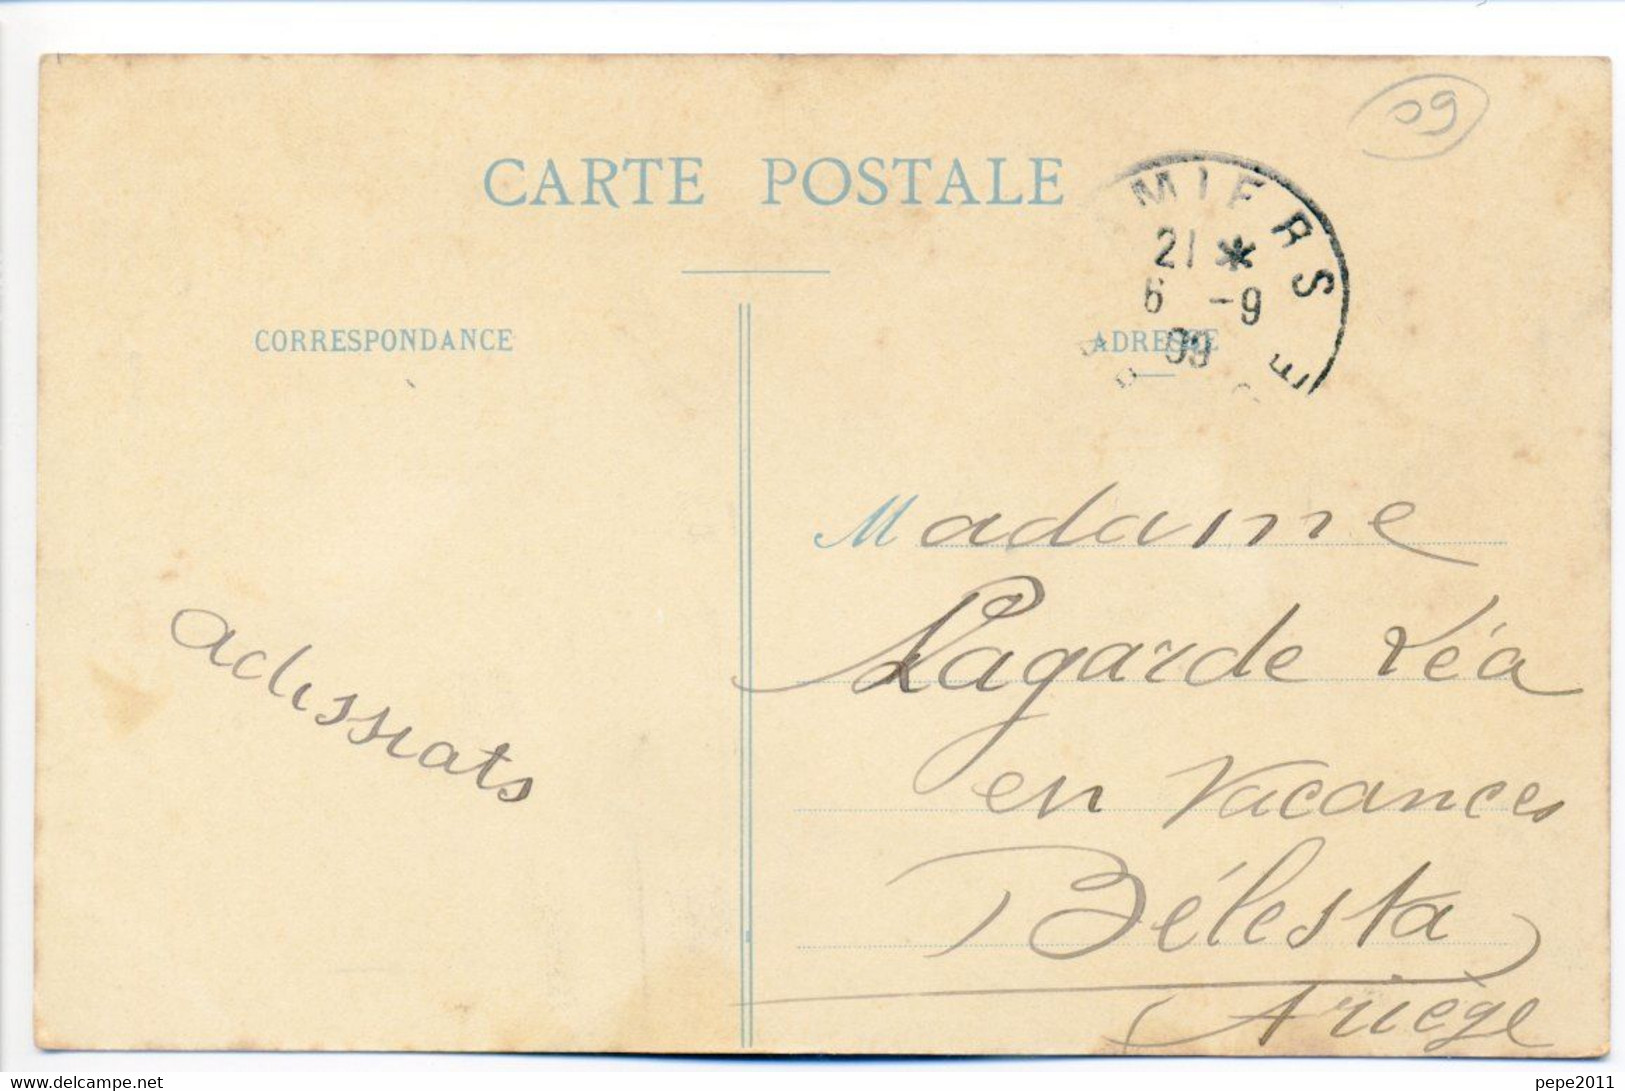 09
CARTE POSTALE
MIERS
21 *
6 -9
09
E
CORRESPONDANCE
ADRESSE
Madame
Lagarde Léa
en Vacances
Bélesta
Ariège
adissiats
www.delcampe.net
pepe2011